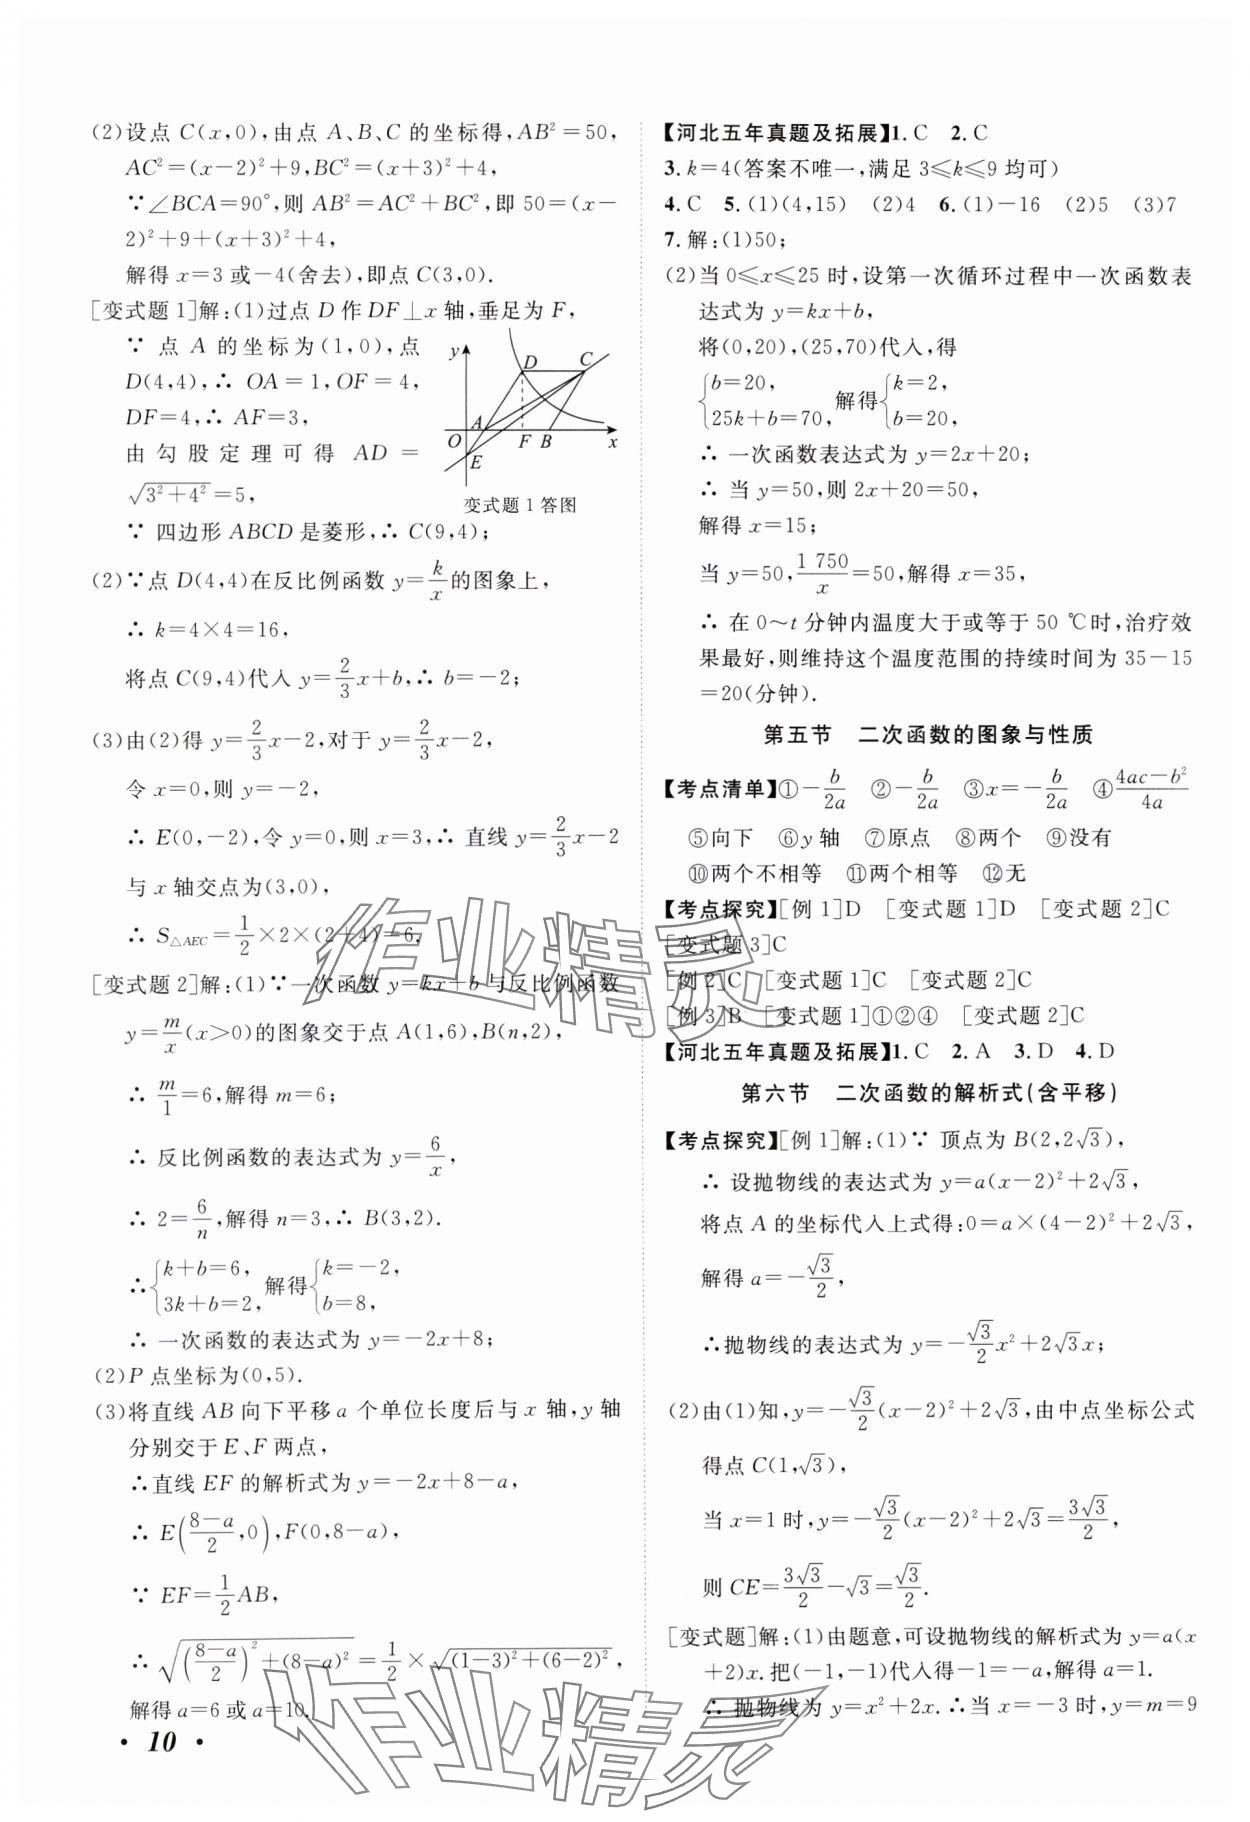 (2)设点 C(x,0),由点 A、B、C 的坐标得,AB²=50,
AC²=(x-2)²+9,BC²=(x+3)²+4,
∵∠BCA=90°,则 AB²=AC²+BC²,即 50=(x-
2)²+9+(x+3)²+4,
解得 x=3 或-4(舍去),即点 C(3,0).
[变式题 1]解:(1)过点 D 作 DF⊥x 轴,垂足为 F,
∵ 点 A 的坐标为(1,0),点
D(4,4),∴ OA=1,OF=4,
DF=4,∴ AF=3,
由勾股定理可得 AD=
√(3²+4²)=5,
y D C A O F B x E
变式题 1 答图
∵ 四边形 ABCD 是菱形,∴ C(9,4);
(2)∵点 D(4,4)在反比例函数 y=k/x的图象上,
∴ k=4×4=16,
将点 C(9,4)代入 y=2/3x+b,∴ b=-2;
(3)由(2)得 y=2/3x-2,对于 y=2/3x-2,
令 x=0,则 y=-2,
∴ E(0,-2),令 y=0,则 x=3,∴ 直线 y=2/3x-2
与 x 轴交点为(3,0),
∴ S△AEC=1/2×2×(2+4)=6.
[变式题 2]解:(1)∵一次函数 y=kx+b 与反比例函数
y=m/x(x>0)的图象交于点 A(1,6),B(n,2),
∴ m/1=6,解得 m=6;
∴ 反比例函数的表达式为 y=6/x,
∴ 2=6/n,解得 n=3,∴ B(3,2).
∴{k+b=6, 3k+b=2, 解得{k=-2, b=8,
∴ 一次函数的表达式为 y=-2x+8;
(2)P 点坐标为(0,5).
(3)将直线 AB 向下平移 a 个单位长度后与 x 轴,y 轴
分别交于 E、F 两点,
∴直线 EF 的解析式为 y=-2x+8-a,
∴ E((8-a)/2,0),F(0,8-a),
∵ EF=1/2AB,
∴ √(((8-a)/2)²+(8-a)²)=1/2×√((1-3)²+(6-2)²),
解得 a=6 或 a=10.
· 10 ·
【河北五年真题及拓展】1. C 2. C
3. k=4(答案不唯一,满足 3≤k≤9 均可)
4. C 5. (1)(4,15) (2)4 6. (1)-16 (2)5 (3)7
7. 解:(1)50;
(2)当 0≤x≤25 时,设第一次循环过程中一次函数表
达式为 y=kx+b,
将(0,20),(25,70)代入,得
{b=20, 25k+b=70, 解得{k=2, b=20,
∴ 一次函数表达式为 y=2x+20;
∴ 当 y=50,则 2x+20=50,
解得 x=15;
当 y=50,1 750/x=50,解得 x=35,
∴ 在 0~t 分钟内温度大于或等于 50 ℃时,治疗效
果最好,则维持这个温度范围的持续时间为 35-15
=20(分钟).
第五节 二次函数的图象与性质
【考点清单】①-b/2a ②-b/2a ③x=-b/2a ④(4ac-b²)/4a
⑤向下 ⑥y 轴 ⑦原点 ⑧两个 ⑨没有
⑩两个不相等 ⑪两个相等 ⑫无
【考点探究】[例 1]D [变式题 1]D [变式题 2]C
[变式题 3]C
[例 2]C [变式题 1]C [变式题 2]C
[例 3]B [变式题 1]①②④ [变式题 2]C
【河北五年真题及拓展】1. C 2. A 3. D 4. D
第六节 二次函数的解析式(含平移)
【考点探究】[例 1]解:(1)∵ 顶点为 B(2,2√3),
∴ 设抛物线的表达式为 y=a(x-2)²+2√3,
将点 A 的坐标代入上式得:0=a×(4-2)²+2√3,
解得 a=-√3/2,
∴抛物线的表达式为 y=-√3/2x²+2√3x;
(2)由(1)知,y=-√3/2(x-2)²+2√3,由中点坐标公式
得点 C(1,√3),
当 x=1 时,y=-√3/2(x-2)²+2√3=3√3/2,
则 CE=3√3/2-√3=√3/2.
[变式题]解:(1)由题意,可设抛物线的解析式为 y=a(x
+2)x.把(-1,-1)代入得-1=-a,解得 a=1.
∴ 抛物线为 y=x²+2x.∴当 x=-3 时,y=m=9
作业精灵
作业精灵